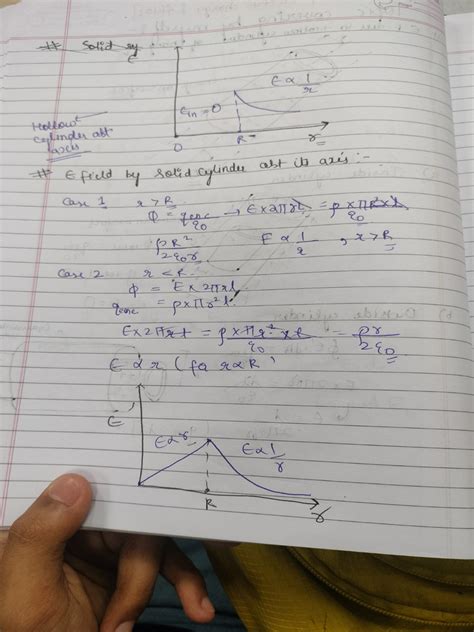 ## Solid sy
E
E ∝ 1/r
Ein = 0
Hollow
cylinder abt
axis
O R r
## E field by solid cylinder abt its axis :-
Case 1 r > R
Φ = qenc/ε0 → E × 2πrl = ρ × πR²×l/ε0
ρR²/2ε0r E ∝ 1/r , r > R
Case 2 r < R
Φ = E × 2πrl
qenc = ρ × πr²l
E × 2πrl = ρ × πr² × l/ε0 = ρr/2ε0
E ∝ r (for r<R)
E
E ∝ r E ∝ 1/r
R r